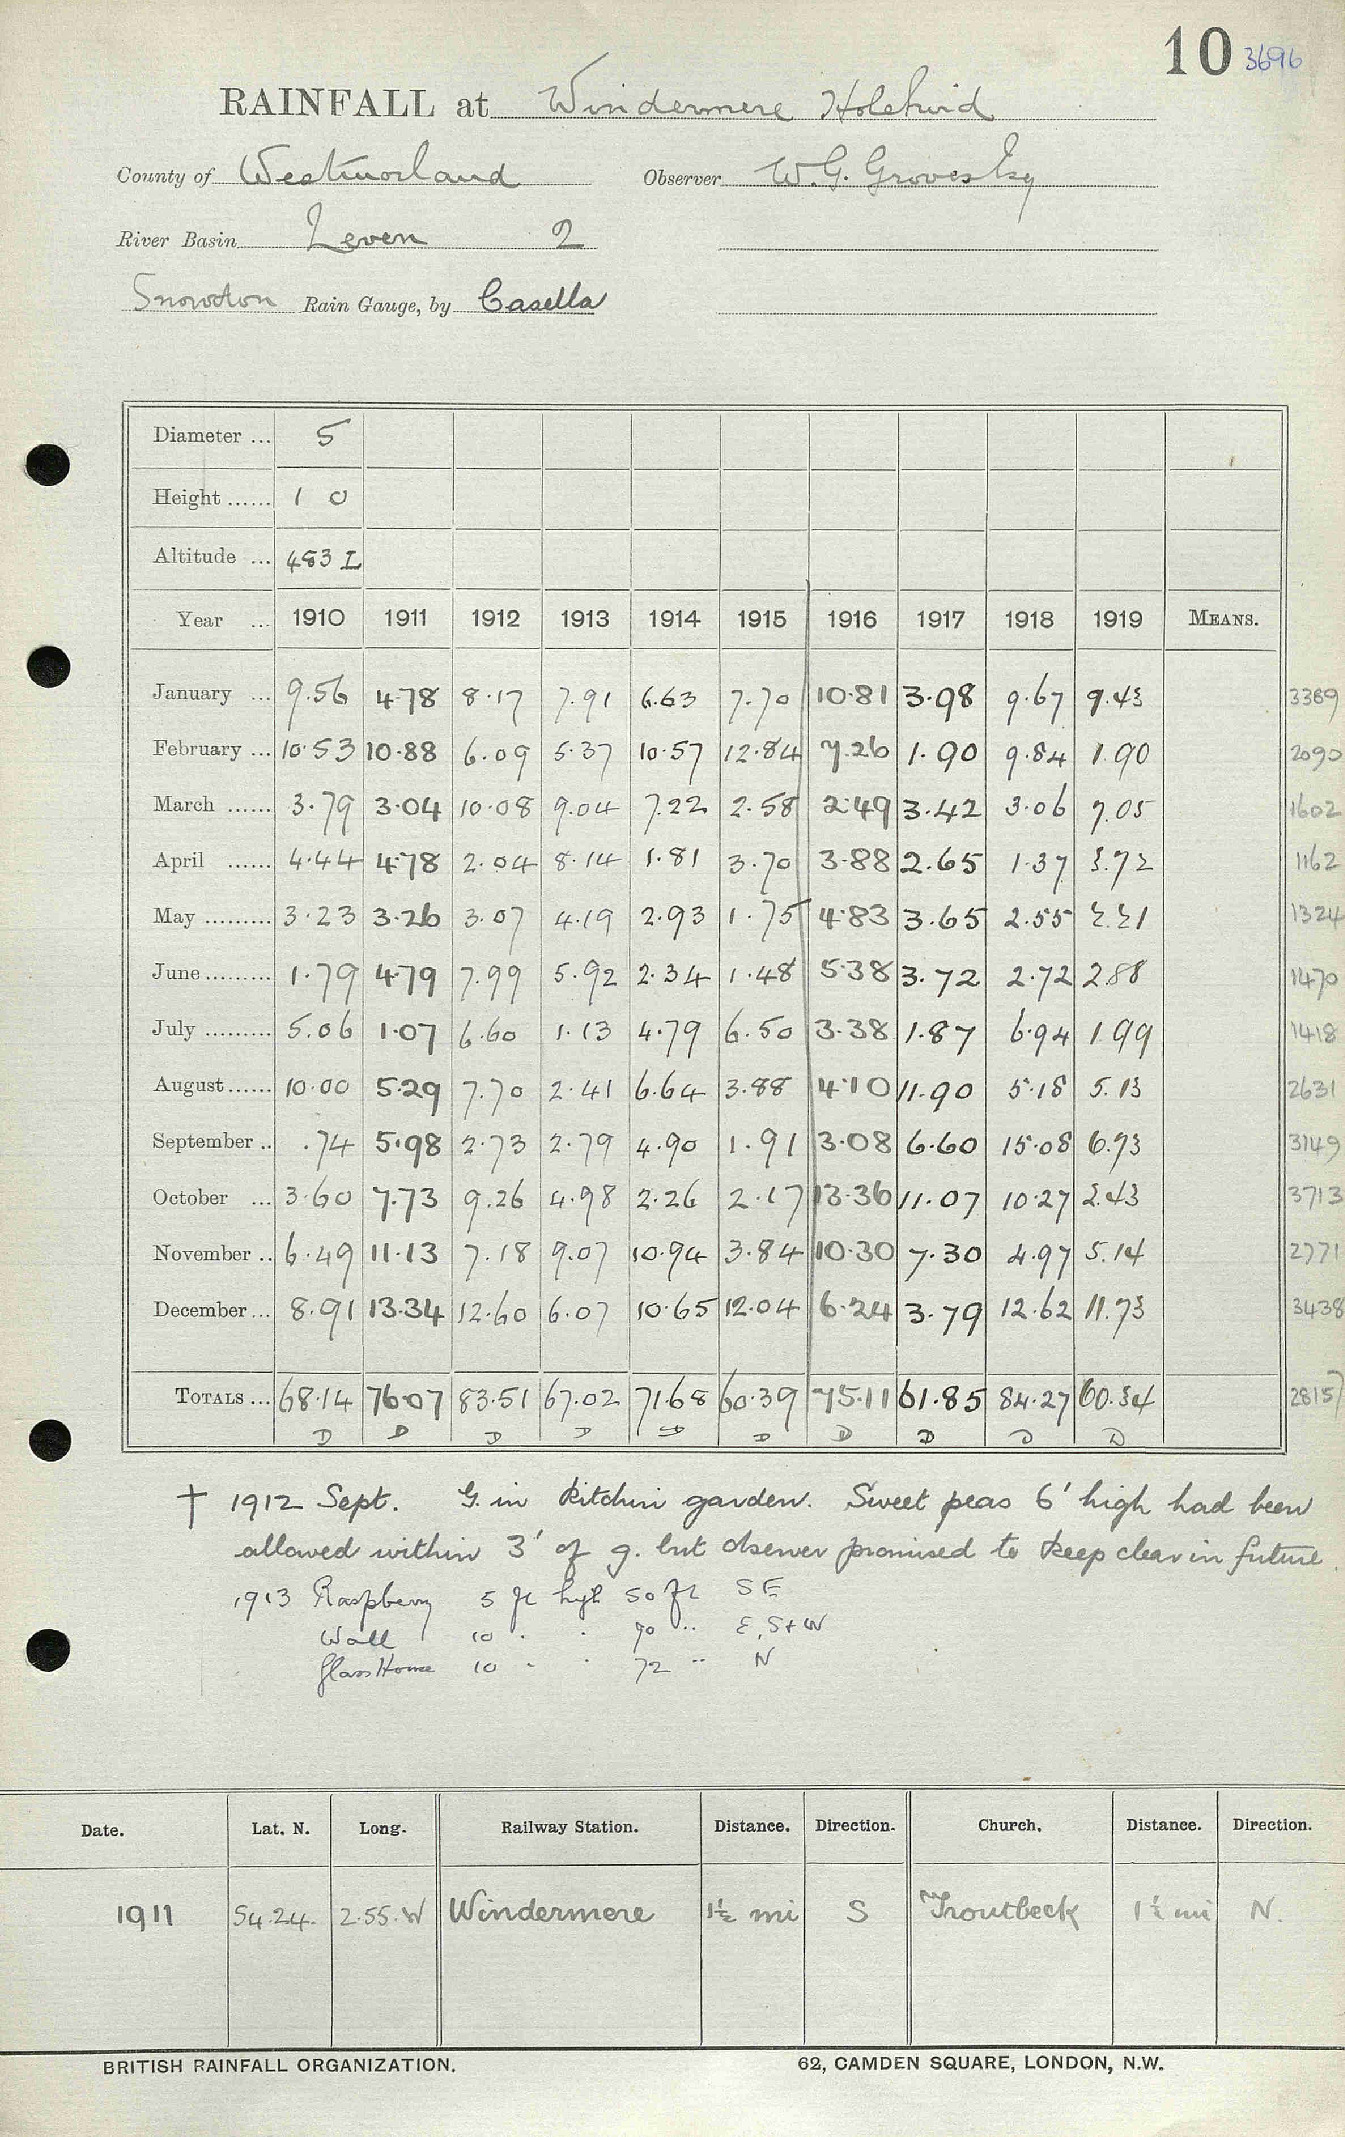 10 3696
RAINFALL at Windermere Holehird
County of Westmorland Observer W. G. Groves Esq
River Basin Leven 2
Snowdon Rain Gauge, by Casella
Diameter ... 5
Height ...... 1 0
Altitude ... 483 L
Year ... 1910 1911 1912 1913 1914 1915 1916 1917 1918 1919 MEANS.
January ... 9.56 4.78 8.17 7.91 6.63 7.70 10.81 3.98 9.67 9.43 3389
February ... 10.53 10.88 6.09 5.37 10.57 12.84 7.26 1.90 9.84 1.90 2090
March ...... 3.79 3.04 10.08 9.04 7.22 2.58 2.49 3.42 3.06 7.05 1602
April ...... 4.44 4.78 2.04 8.14 1.81 3.70 3.88 2.65 1.37 3.72 1162
May ......... 3.23 3.26 3.07 4.19 2.93 1.75 4.83 3.65 2.55 2.21 1324
June ......... 1.79 4.79 7.99 5.92 2.34 1.48 5.38 3.72 2.72 2.88 1470
July ......... 5.06 1.07 6.60 1.13 4.79 6.50 3.38 1.87 6.94 1.99 1418
August ...... 10.00 5.29 7.70 2.41 6.64 3.88 4.10 11.90 5.18 5.13 2631
September .. .74 5.98 2.73 2.79 4.90 1.91 3.08 6.60 15.08 6.73 3149
October ... 3.60 7.73 9.26 4.98 2.26 2.17 13.36 11.07 10.27 2.43 3713
November .. 6.49 11.13 7.18 9.07 10.94 3.84 10.30 7.30 4.97 5.14 2771
December ... 8.91 13.34 12.60 6.07 10.65 12.04 6.24 3.79 12.62 11.73 3438
TOTALS ... 68.14 76.07 83.51 67.02 71.68 60.39 75.11 61.85 84.27 60.34 28157
D D D D D D D D D D
† 1912 Sept. G. in kitchin garden. Sweet peas 6' high had been
allowed within 3' of g. but observer promised to keep clear in future.
1913 Raspberry 5 ft high 50 ft SE
Wall 10 " " 70 " E, S + W
Glass House 10 " " 72 " N
Date. Lat. N. Long. Railway Station. Distance. Direction. Church. Distance. Direction.
1911 54.24. 2.55.W Windermere 1½ mi S Troutbeck 1¼ mi N.
BRITISH RAINFALL ORGANIZATION. 62, CAMDEN SQUARE, LONDON, N.W.